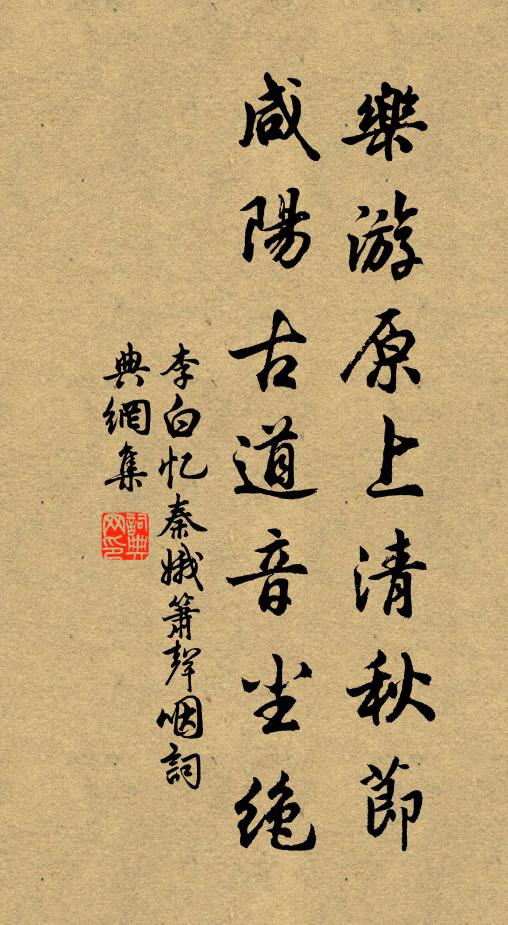 樂游原上清秋節
咸陽古道音尘绝
李白忆秦娥簫聲咽詞
典網集
詞典
网印